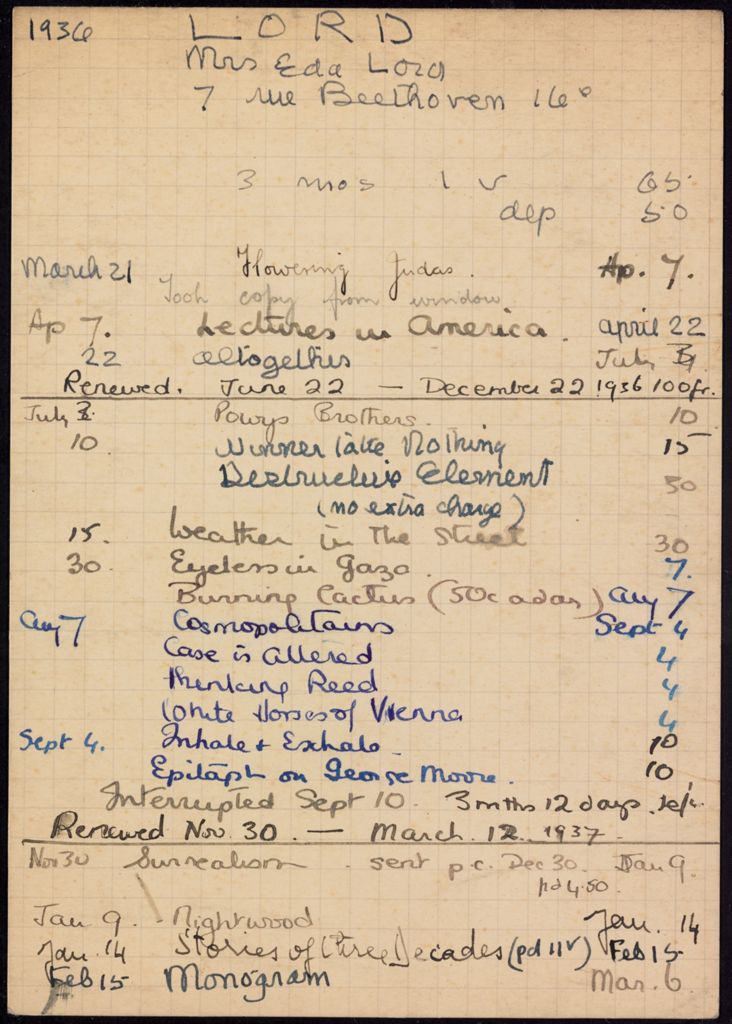 1936 LORD
Mrs Eda Lord
7 rue Beethoven 16e
3 mos 1 v 65.
dep 50
March 21 Flowering Judas. Ap. 7.
Took copy from window
Ap 7. Lectures in America. april 22
22 altogether July 3
Renewed. June 22 — December 22 1936 100fr.
July 3. Powys Brothers. 10
10. Winner Take Nothing 15
Destructive Element 30
(no extra charge)
15. Weather in The Street 30
30. Eyeless in Gaza. 7.
Burning Cactus (50c a day) Aug 7
Aug 7 Cosmopolitans Sept 4
Case is altered 4
Thinking Reed 4
White Horses of Vienna 4
Sept 4. Inhale + Exhale 10
Epitaph on George Moore. 10
Interrupted Sept 10. 3 mnths 12 days
Renewed Nov. 30. — March. 12. 1937.
Nov 30 Surrealism. sent p.c. Dec 30. Jan 9.
pd 4.50.
Jan 9. Nightwood Jan. 14
Jan. 14 Stories of three Decades (pd 11 v) Feb 15
Feb 15 Monogram Mar. 6.